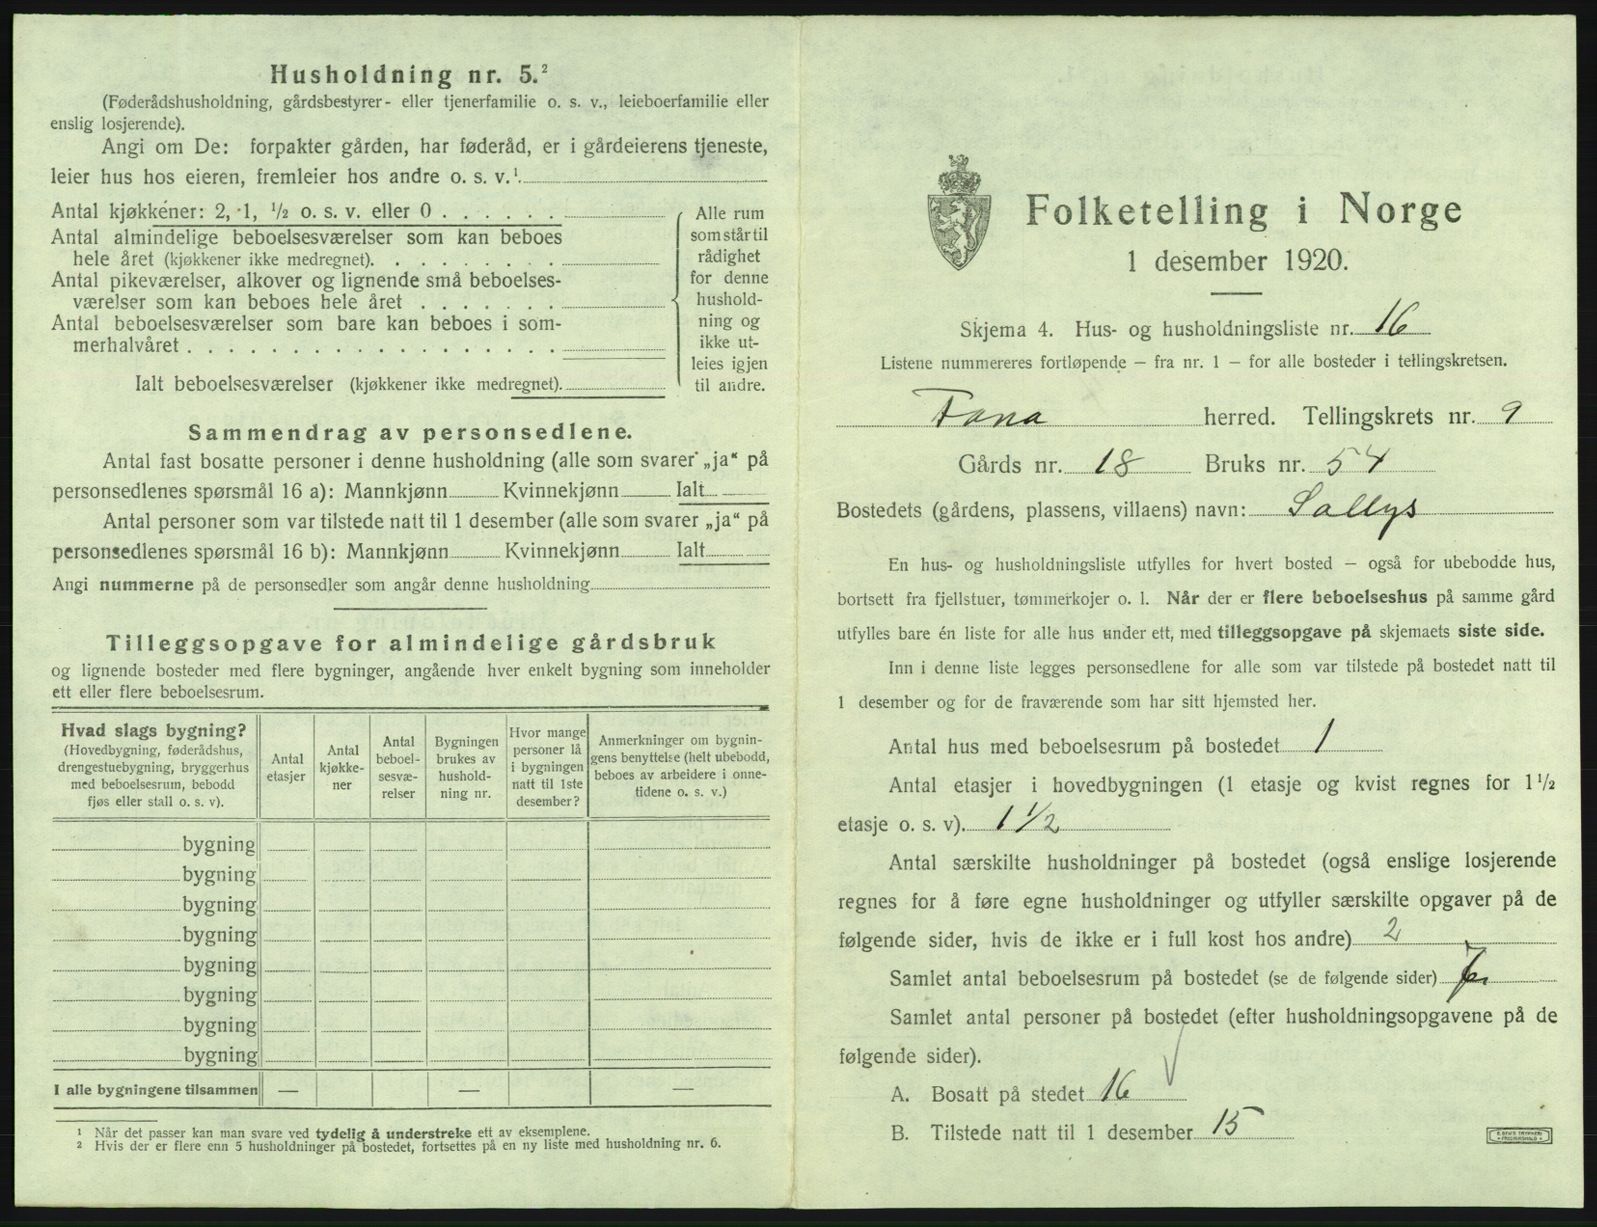 Husholdning nr. 5.²
(Føderådshusholdning, gårdsbestyrer- eller tjenerfamilie o. s. v., leieboerfamilie eller
enslig losjerende).
Angi om De: forpakter gården, har føderåd, er i gårdeierens tjeneste,
leier hus hos eieren, fremleier hos andre o. s. v.¹
Antal kjøkkener: 2, 1, ½ o. s. v. eller 0
Antal almindelige beboelsesværelser som kan beboes
hele året (kjøkkener ikke medregnet).
Antal pikeværelser, alkover og lignende små beboelses-
værelser som kan beboes hele året
Antal beboelsesværelser som bare kan beboes i som-
merhalvåret
Ialt beboelsesværelser (kjøkkener ikke medregnet).
Alle rum
som står til
rådighet
for denne
hushold-
ning og
ikke ut-
leies igjen
til andre.
Sammendrag av personsedlene.
Antal fast bosatte personer i denne husholdning (alle som svarer „ja“ på
personsedlenes spørsmål 16 a): Mannkjønn Kvinnekjønn Ialt
Antal personer som var tilstede natt til 1 desember (alle som svarer „ja“ på
personsedlenes spørsmål 16 b): Mannkjønn Kvinnekjønn Ialt
Angi nummerne på de personsedler som angår denne husholdning
Tilleggsopgave for almindelige gårdsbruk
og lignende bosteder med flere bygninger, angående hver enkelt bygning som inneholder
ett eller flere beboelsesrum.
Hvad slags bygning?
(Hovedbygning, føderådshus,
drengestuebygning, bryggerhus
med beboelsesrum, bebodd
fjøs eller stall o. s. v).
Antal
etasjer
Antal
kjøkke-
ner
Antal
beboel-
sesvæ-
relser
Bygningen
brukes av
hushold-
ning nr.
Hvor mange
personer lå
i bygningen
natt til 1ste
desember?
Anmerkninger om bygnin-
gens benyttelse (helt ubebodd,
beboes av arbeidere i onne-
tidene o. s. v.)
bygning
bygning
bygning
bygning
bygning
bygning
bygning
bygning
I alle bygningene tilsammen — — —
¹ Når det passer kan man svare ved tydelig å understreke ett av eksemplene.
² Hvis der er flere enn 5 husholdninger på bostedet, fortsettes på en ny liste med husholdning nr. 6.
Folketelling i Norge
1 desember 1920.
Skjema 4. Hus- og husholdningsliste nr. 16
Listene nummereres fortløpende — fra nr. 1 — for alle bosteder i tellingskretsen.
Fana herred. Tellingskrets nr. 9
Gårds nr. 18 Bruks nr. 54
Bostedets (gårdens, plassens, villaens) navn: Sollys
En hus- og husholdningsliste utfylles for hvert bosted — også for ubebodde hus,
bortsett fra fjellstuer, tømmerkojer o. l. Når der er flere beboelseshus på samme gård
utfylles bare én liste for alle hus under ett, med tilleggsopgave på skjemaets siste side.
Inn i denne liste legges personsedlene for alle som var tilstede på bostedet natt til
1 desember og for de fraværende som har sitt hjemsted her.
Antal hus med beboelsesrum på bostedet 1
Antal etasjer i hovedbygningen (1 etasje og kvist regnes for 1½
etasje o. s. v). 1 ½
Antal særskilte husholdninger på bostedet (også enslige losjerende
regnes for å føre egne husholdninger og utfyller særskilte opgaver på de
følgende sider, hvis de ikke er i full kost hos andre) 2
Samlet antal beboelsesrum på bostedet (se de følgende sider)
Samlet antal personer på bostedet (efter husholdningsopgavene på de
følgende sider).
A. Bosatt på stedet 16
B. Tilstede natt til 1 desember 15